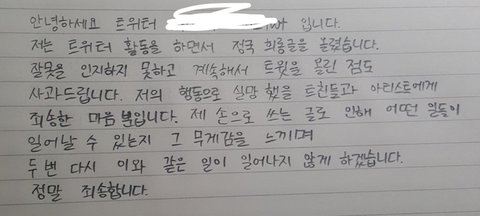 안녕하세요 트위터 입니다.
저는 트위터 활동을 하면서 정국 희롱글을 올렸습니다.
잘못을 인지하지 못하고 계속해서 트윗을 올린 점도
사과드립니다. 저의 행동으로 실망했을 트친들과 아티스트에게
죄송한 마음뿐입니다. 제 손으로 쓰는 글로 인해 어떤 일들이
일어날 수 있는지 그 무게감을 느끼며
두번 다시 이와 같은 일이 일어나지 않게 하겠습니다.
정말 죄송합니다.